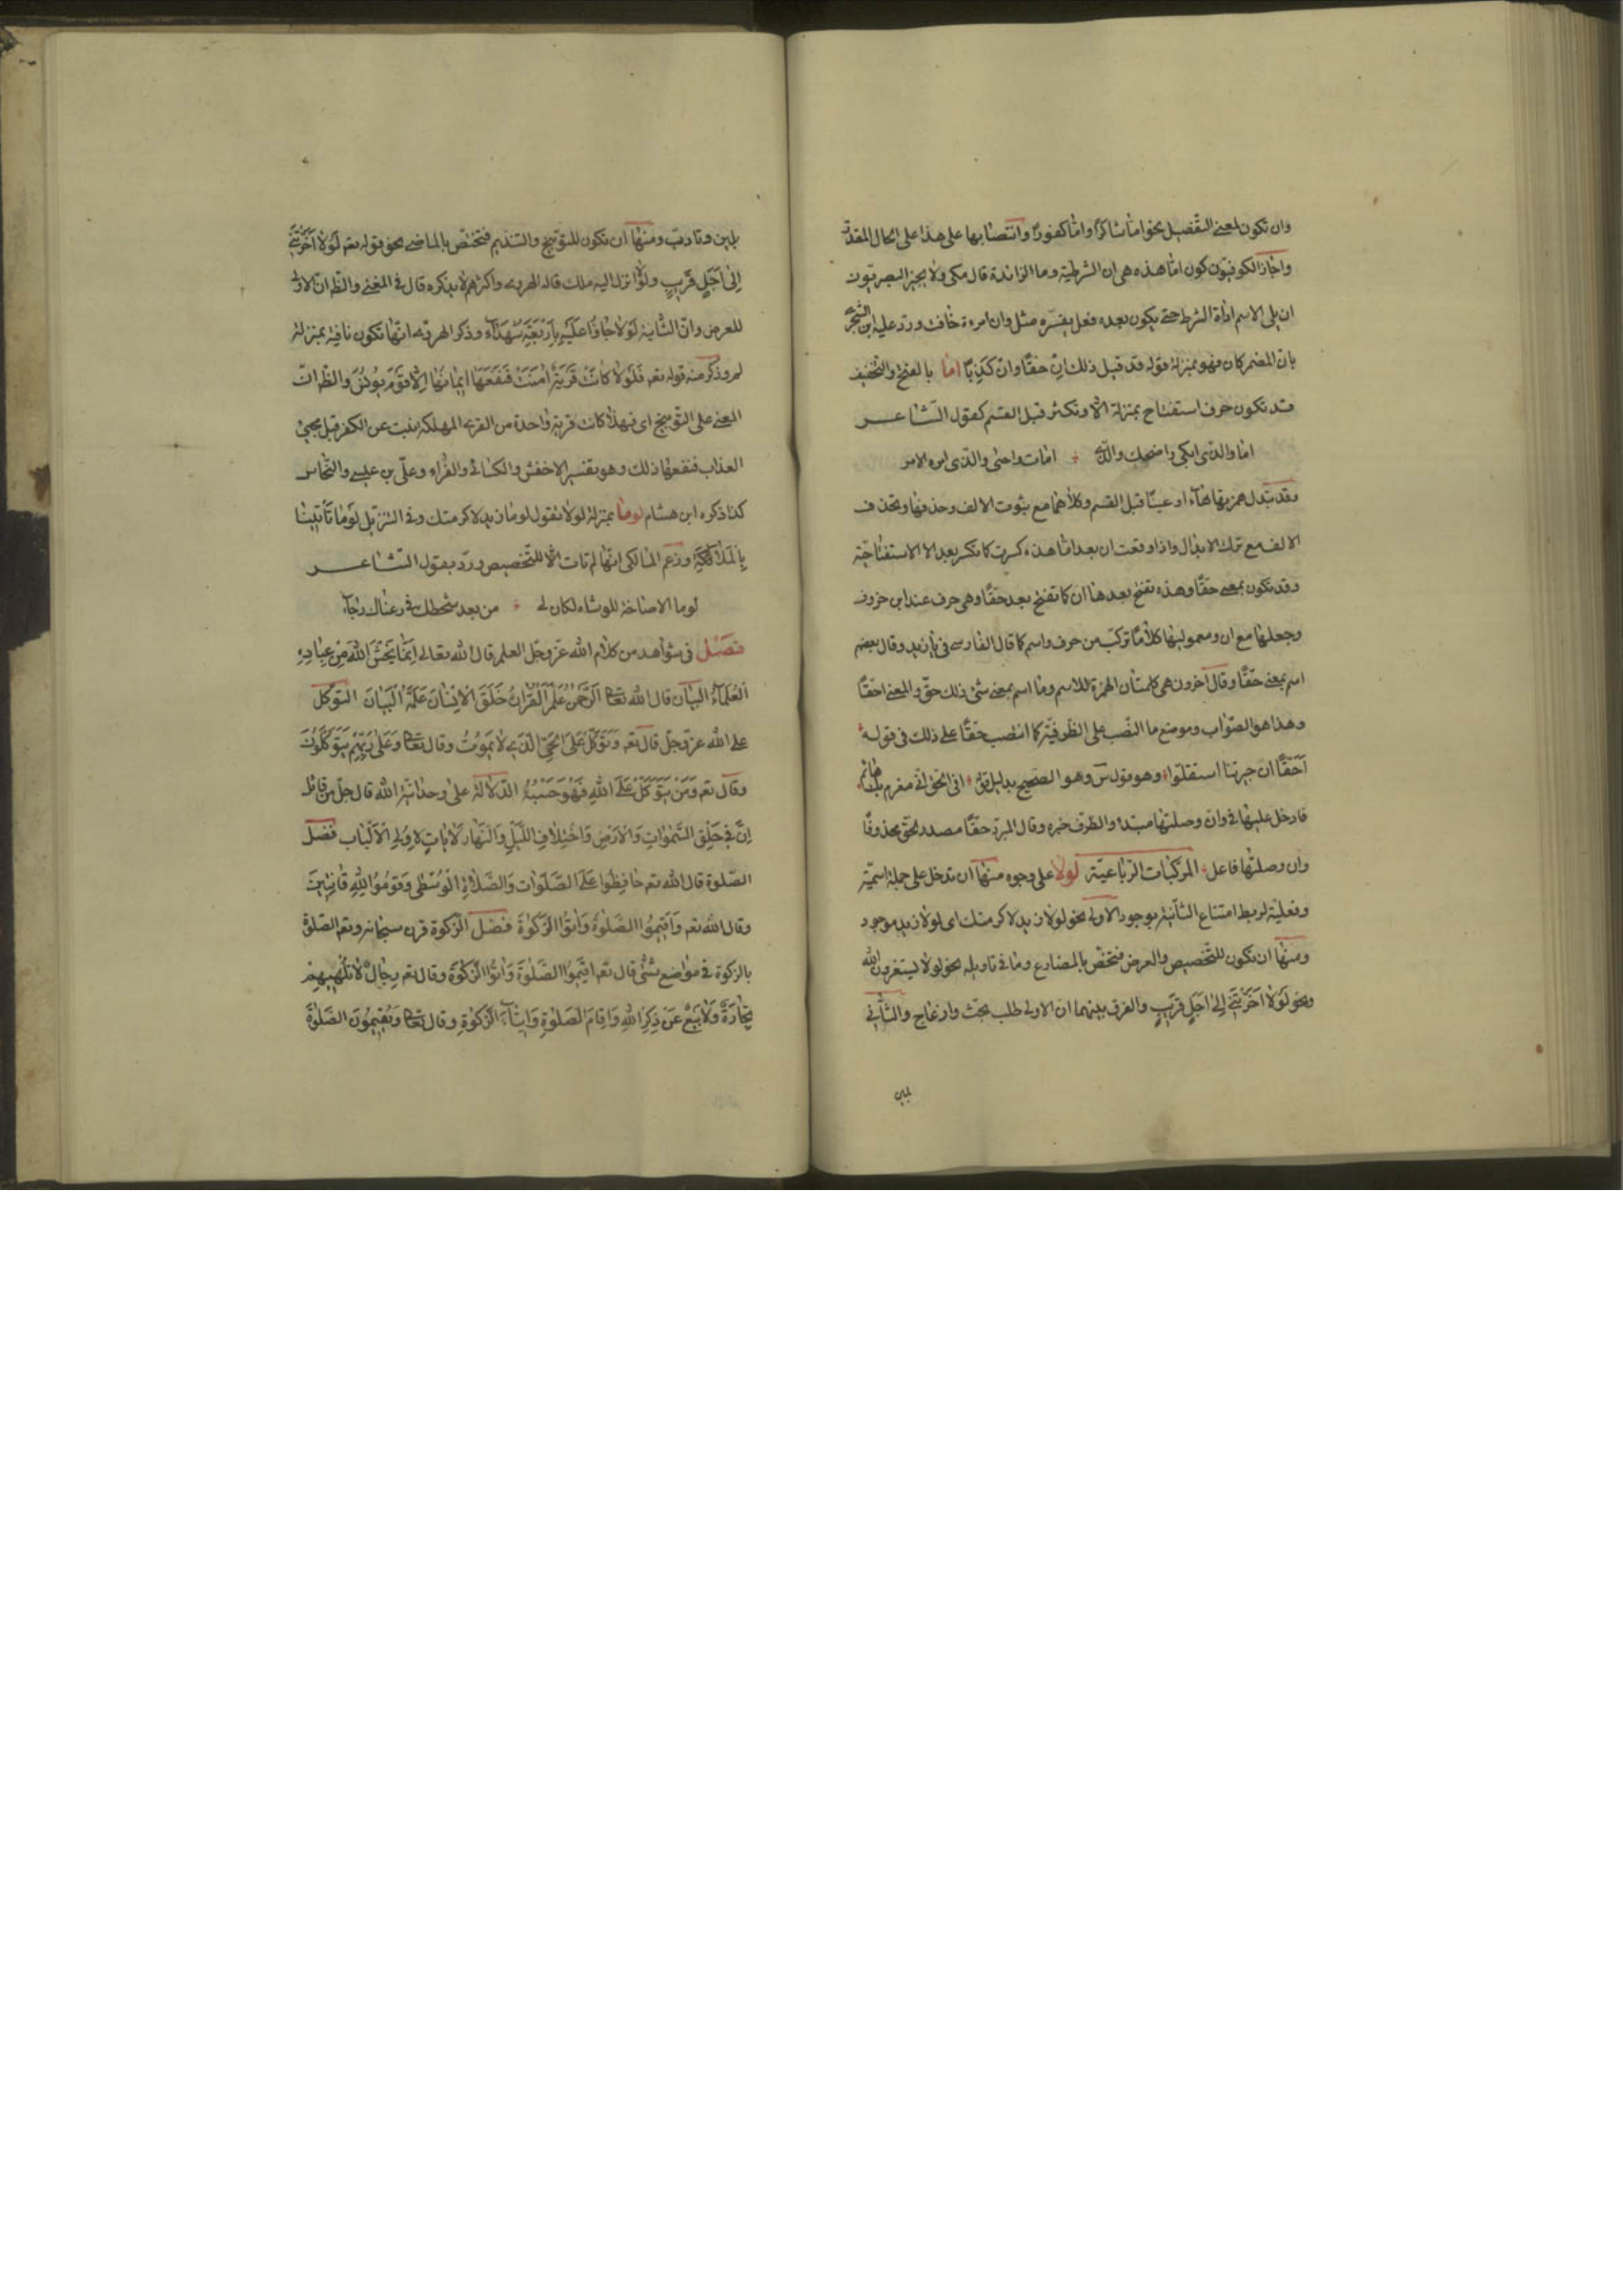 وان تكون لمعنى التفصيل نحو امّا شاكرًا وامّا كفورًا وانتصابها على هذا على الحال المقدّرة
واجاز الكوفيّون كون امّا هذه هى ان الشرطيّة وما الزائدة قال مكى ولا يجيز البصريّون
ان يلى الاسم اداة الشرط حتى يكون بعده فعل يفسّره مثل وان امرءة خافت وردّ عليه ابن الشجرى
بانّ المضمر كان فهو بمنزلة قوله قد قيل ذلك انّ حقّا وانّ كذبًا اما بالفتح والتخفيف
قد تكون حرف استفتاح بمنزلة الّا وتكثر قبل القسم كقول الشاعر
اما والذى ابكى واضحك والذى امات واحيى والذى امره الامر
وقد تبدل همزتها هاء او عينًا قبل القسم وكلاهما مع ثبوت الالف وحذفها وتحذف
الالف مع ترك الابدال واذا وقعت ان بعد اما هذه كسرت كما تكسر بعد الا الاستفتاحيّة
وقد تكون بمعنى حقّا وهذه تفتح بعدها ان كما تفتح بعد حقّا وهى حرف عند ابن خروف
وجعلها مع ان ومعموليها كلامًا تركّب من حرف واسم كما قال الفارسى فى يا زيد وقال بعضهم
اسم بمعنى حقّا وقال آخرون هى كلمتان الهمزة للاسم وما اسم بمعنى شئ ذلك حقّ والمعنى احقّا
وهذا هو الصّواب وموضع ما النّصب على الظرفيّة كما انتصب حقّا على ذلك فى قوله
احقّا ان جيرتنا استقلّوا وهو قول س وهو الصحيح بدليل قوله افى الحق انى مغرم بك هائم
فادخل عليها فى وان وصلتها مبتدا والظرف خبره وقال المبرّد حقّا مصدر لحقّ محذوفًا
وان وصلتها فاعل المركبات الرّباعيّة لولا على وجوه منها ان تدخل على جملة اسميّة
وفعليّة لربط امتناع الثّانية بوجود الاولى نحو لولا زيد لاكرمتك اى لولا زيد موجود
ومنها ان تكون للتّخصيص والعرض فتختصّ بالمضارع وما فى تاويله نحو لولا تستغفرون الله
ونحو لَوْلا اَخَّرْتَنِى اِلى اَجَلٍ قَرِيبٍ والفرق بينهما ان الاولى طلب بحث وازعاج والثّانى
بلين
بلين وتادب ومنها ان تكون للتوبيخ والتنديم فتختصّ بالماضى نحو قوله تعه لَوْلا اَخَّرْتَنِى
اِلى اَجَلٍ قَرِيبٍ ولولا انزل اليه ملك قاله الهروى واكثرهم لا يذكره قال فى المغنى والظّ انّ الاولى
للعرض وانّ الثّانية لَوْلا جَاؤُا عَلَيْهِ بِاَرْبَعَةِ شُهَدَاءَ وذكر الهروى انّها تكون نافية بمنزلة
لم وذكر منه قوله تعه فَلَوْلا كَانَتْ قَرْيَةٌ آمَنَتْ فَنَفَعَهَا اِيمَانُهَا اِلَّا قَوْمَ يُونُسَ والظّ انّ
المعنى على التّوبيخ اى فهلّا كانت قرية واحدة من القرى المهلكة تبت عن الكفر قبل مجئ
العذاب فنفعها ذلك وهو تفسير الاخفش والكسائى والفرّاء وعلىّ بن عيسى والنّحاس
كذا ذكره ابن هشام لوما بمنزلة لولا تقول لوما زيد لاكرمتك وفى التنزيل لَوْمَا تَأْتِينَا
بِالْمَلَائِكَةِ وزعم المالكى انّها لم تات الّا للتّخصيص وردّ بقول الشاعر
لوما الاصاخة للوشاة لكان لى من بعد سخطك فى رضاك رجاء
فَصْل فى شواهد من كلام الله عزّ وجلّ العلم قال الله تعالى اِنَّمَا يَخْشَى اللهَ مِنْ عِبَادِهِ
الْعُلَمَاءُ البيان قال الله تعا اَلرَّحْمٰنُ عَلَّمَ الْقُرْآنَ خَلَقَ الْاِنْسَانَ عَلَّمَهُ الْبَيَانَ التوكّل
على الله عزّ وجلّ قال تعه وَتَوَكَّلْ عَلَى الْحَىِّ الَّذِى لَا يَمُوتُ وقال تعا وَعَلٰى رَبِّهِمْ يَتَوَكَّلُونَ
وقال تعه وَمَنْ يَتَوَكَّلْ عَلَى اللهِ فَهُوَ حَسْبُهُ الدّلالة على وحدانيّة الله قال جلّ من قائل
اِنَّ فِى خَلْقِ السَّمٰوَاتِ وَالْاَرْضِ وَاخْتِلَافِ اللَّيْلِ وَالنَّهَارِ لَآيَاتٍ لِاُولِى الْاَلْبَابِ فصل
الصّلوة قال الله تعه حَافِظُوا عَلَى الصَّلَوَاتِ وَالصَّلَاةِ الْوُسْطٰى وَقُومُوا لِلّٰهِ قَانِتِينَ
وقال الله تعه وَاَقِيمُوا الصَّلٰوةَ وَآتُوا الزَّكٰوةَ فصل الزّكوة قرن سبحانه وتعه الصّلوة
بالزكوة فى مواضع شتّى قال تعه اَقِيمُوا الصَّلٰوةَ وَآتُوا الزَّكٰوةَ وقال تعه رِجَالٌ لَا تُلْهِيهِمْ
تِجَارَةٌ وَلَا بَيْعٌ عَنْ ذِكْرِ اللهِ وَاِقَامِ الصَّلٰوةِ وَاِيتَاءِ الزَّكٰوةِ وقال تعا وَيُقِيمُونَ الصَّلٰوةَ